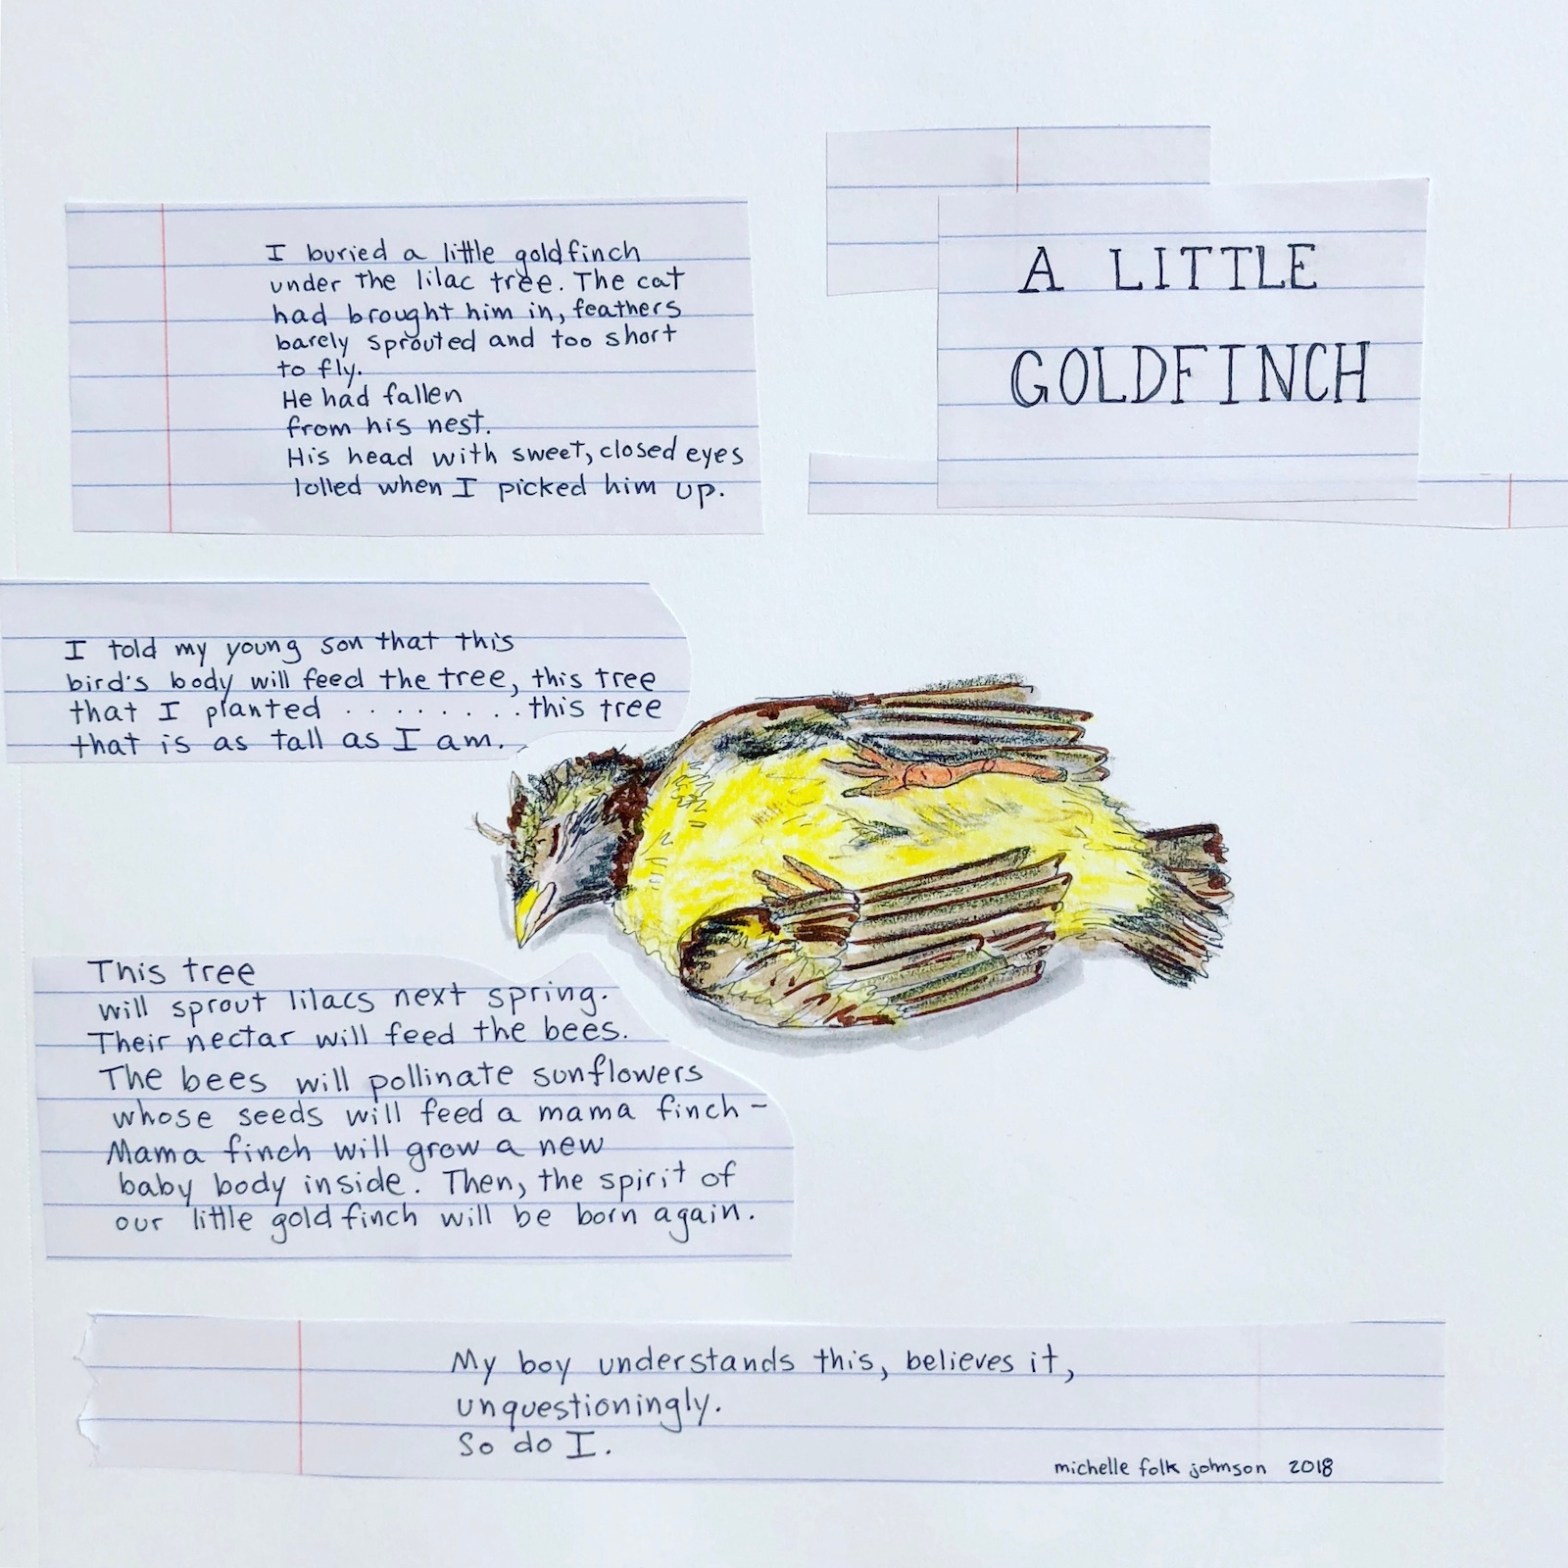 A LITTLE
GOLDFINCH
I buried a little goldfinch
under the lilac tree. The cat
had brought him in, feathers
barely sprouted and too short
to fly.
He had fallen
from his nest.
His head with sweet, closed eyes
lolled when I picked him up.
I told my young son that this
bird's body will feed the tree, this tree
that I planted . . . . . . . . this tree
that is as tall as I am.
This tree
will sprout lilacs next spring.
Their nectar will feed the bees.
The bees will pollinate sunflowers
whose seeds will feed a mama finch -
Mama finch will grow a new
baby body inside. Then, the spirit of
our little goldfinch will be born again.
My boy understands this, believes it,
unquestioningly.
So do I.
michelle folk johnson 2018